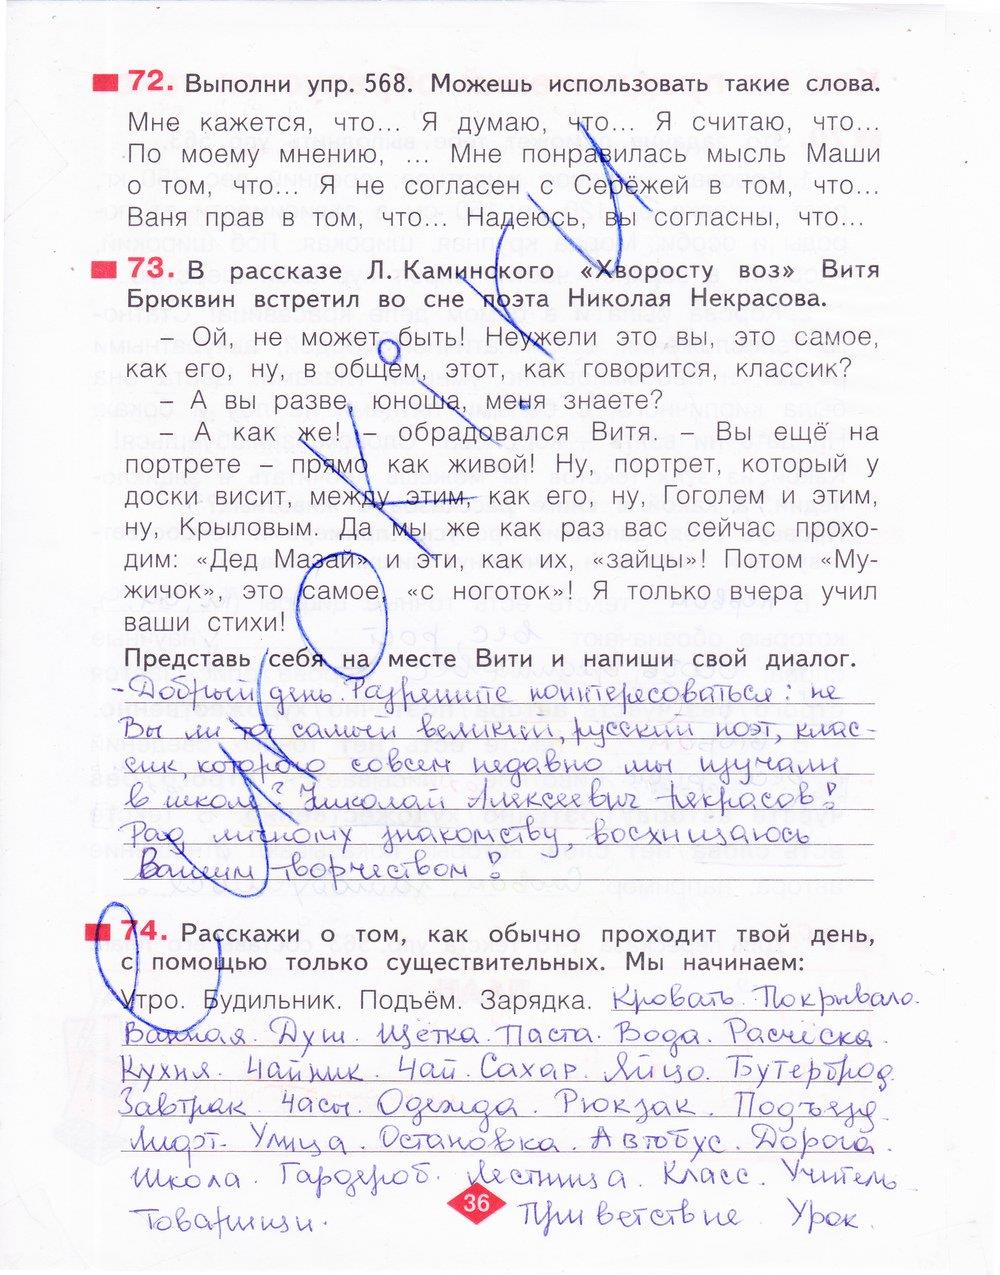 72. Выполни упр. 568. Можешь использовать такие слова.
Мне кажется, что... Я думаю, что... Я считаю, что...
По моему мнению, ... Мне понравилась мысль Маши
о том, что... Я не согласен с Серёжей в том, что...
Ваня прав в том, что... Надеюсь, вы согласны, что...
73. В рассказе Л. Каминского «Хворосту воз» Витя
Брюквин встретил во сне поэта Николая Некрасова.
– Ой, не может быть! Неужели это вы, это самое,
как его, ну, в общем, этот, как говорится, классик?
– А вы разве, юноша, меня знаете?
– А как же! – обрадовался Витя. – Вы ещё на
портрете – прямо как живой! Ну, портрет, который у
доски висит, между этим, как его, ну, Гоголем и этим,
ну, Крыловым. Да мы же как раз вас сейчас прохо-
дим: «Дед Мазай» и эти, как их, «зайцы»! Потом «Му-
жичок», это самое, «с ноготок»! Я только вчера учил
ваши стихи!
Представь себя на месте Вити и напиши свой диалог.
- Добрый день. Разрешите поинтересоваться: не
Вы ли то самый великий русский поэт, клас-
сик, которого совсем недавно мы изучали
в школе? Николай Алексеевич Некрасов!
Рад личному знакомству, восхищаюсь
Вашим творчеством!
74. Расскажи о том, как обычно проходит твой день,
с помощью только существительных. Мы начинаем:
Утро. Будильник. Подъём. Зарядка. Кровать. Покрывало.
Ванная. Душ. Щётка. Паста. Вода. Расчёска.
Кухня. Чайник. Чай. Сахар. Яйцо. Бутерброд.
Завтрак. Часы. Одежда. Рюкзак. Подъезд.
Лифт. Улица. Остановка. Автобус. Дорога.
Школа. Гардероб. Лестница. Класс. Учитель
Товарищи. Приветствие. Урок.
36